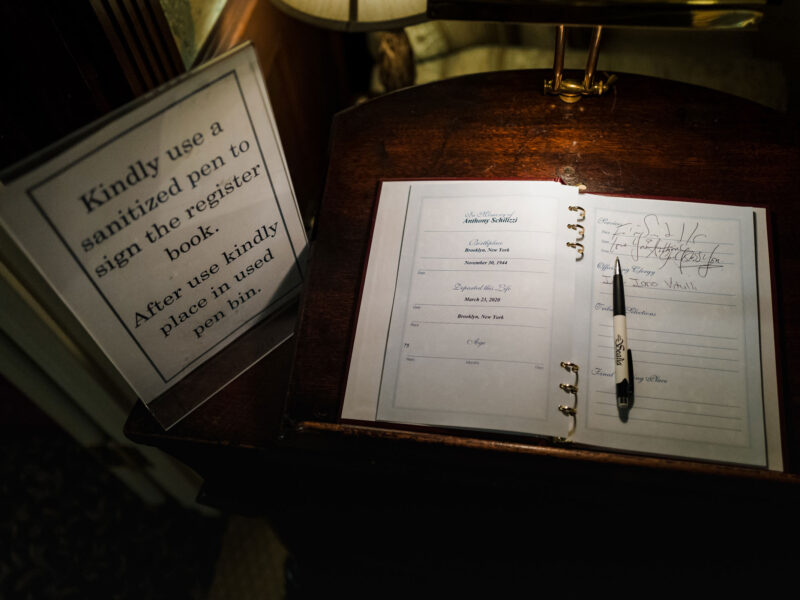 Kindly use a
sanitized pen to
sign the register
book.
After use kindly
place in used
pen bin.
In Memory of
Anthony Schilizzi
Birthplace
Brooklyn, New York
November 30, 1944
Date
Departed this Life
March 23, 2020
Date
Brooklyn, New York
Place
Age
75
Years
Months
Days
Services
Officiating Clergy
Final Resting Place
Scalia